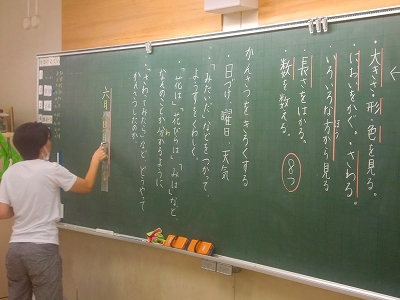 ・大きさ・形・色を見る。
・においをかぐ。・さわる。
・いろいろな方から見る
ほう
・長さをはかる。
・数を数える。
8つ
かんさつをきろくする
・日づけ、曜日、天気
・「みたいだ」などをつかって、
ようすをくわしく。
・「花は」「花びらは」「みは」など、
なんのことか分かるように
・「さわってみたら」など、どうやって
かんさつしたのか。
六月